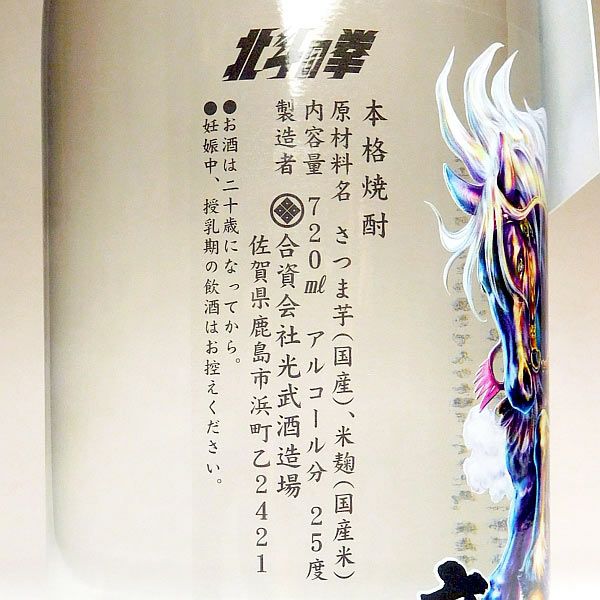 北斗の拳
本格焼酎
原材料名 さつま芋(国産)、米麹(国産米)
内容量 720㎖ アルコール分 25度
製造者 合資会社光武酒造場
佐賀県鹿島市浜町乙2421
●お酒は二十歳になってから。
●妊娠中、授乳期の飲酒はお控えください。